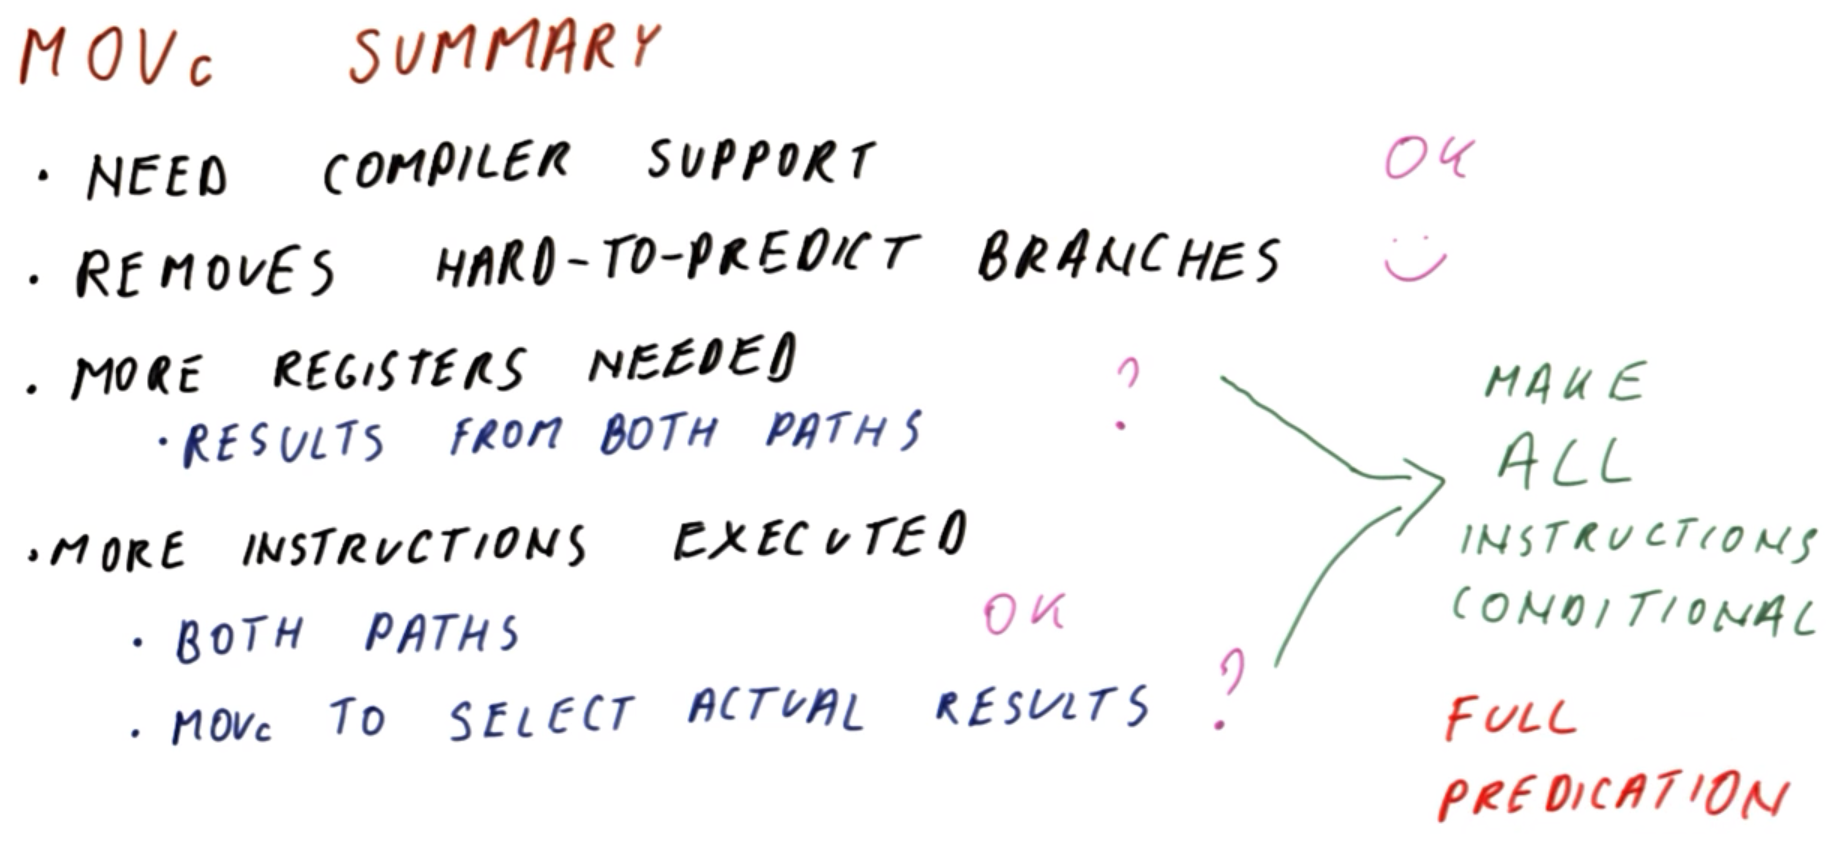 MOVc SUMMARY
• NEED COMPILER SUPPORT OK
• REMOVES HARD-TO-PREDICT BRANCHES
• MORE REGISTERS NEEDED
• RESULTS FROM BOTH PATHS ?
• MORE INSTRUCTIONS EXECUTED
• BOTH PATHS OK
• MOVc TO SELECT ACTUAL RESULTS ?
MAKE
ALL
INSTRUCTIONS
CONDITIONAL
FULL
PREDICATION